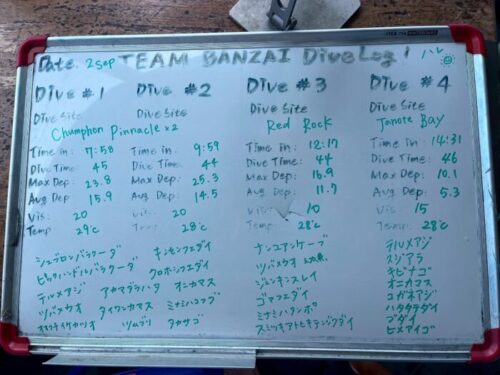 Date. 2 Sep TEAM BANZAI Dive Log! ハレ
Dive #1 Dive #2 Dive #3 Dive #4
Dive Site Dive Site Dive Site Dive Site
Chumphon Pinnacle x2 Red Rock Tanote Bay
Time in: 7:58 Time in: 9:59 Time in: 12:17 Time in: 14:31
Dive Time: 45 Dive Time: 44 Dive Time: 44 Dive Time: 46
Max Dep: 23.8 Max Dep: 25.3 Max Dep: 16.9 Max Dep: 10.1
Avg Dep: 15.9 Avg Dep: 14.5 Avg Dep: 11.7 Avg Dep: 5.3
Vis: 20 Vis: 20 Vis: 10 Vis: 15
Temp 29℃ Temp: 28℃ Temp 28℃ Temp: 28℃
シェブロンバラクーダ キンセンフエダイ ナンヨウケーブ テルメアジ
ピックハンドルバラクーダ クロホシフエダイ ツバメウオ 幼魚 スジアラ
テルメアジ アカマダラハタ オニカマス ジェンキンスレイ キビナゴ
ツバメウオ タイワンカマス ミナミハコフグ ゴマフエダイ オニカマス
オオクチイケカツオ ツムブリ タカサゴ ミナミハタンポ コガネアジ
スミツキアトヒキテンジクダイ ハタタテダイ
ゴダイ
ヒメアイゴ